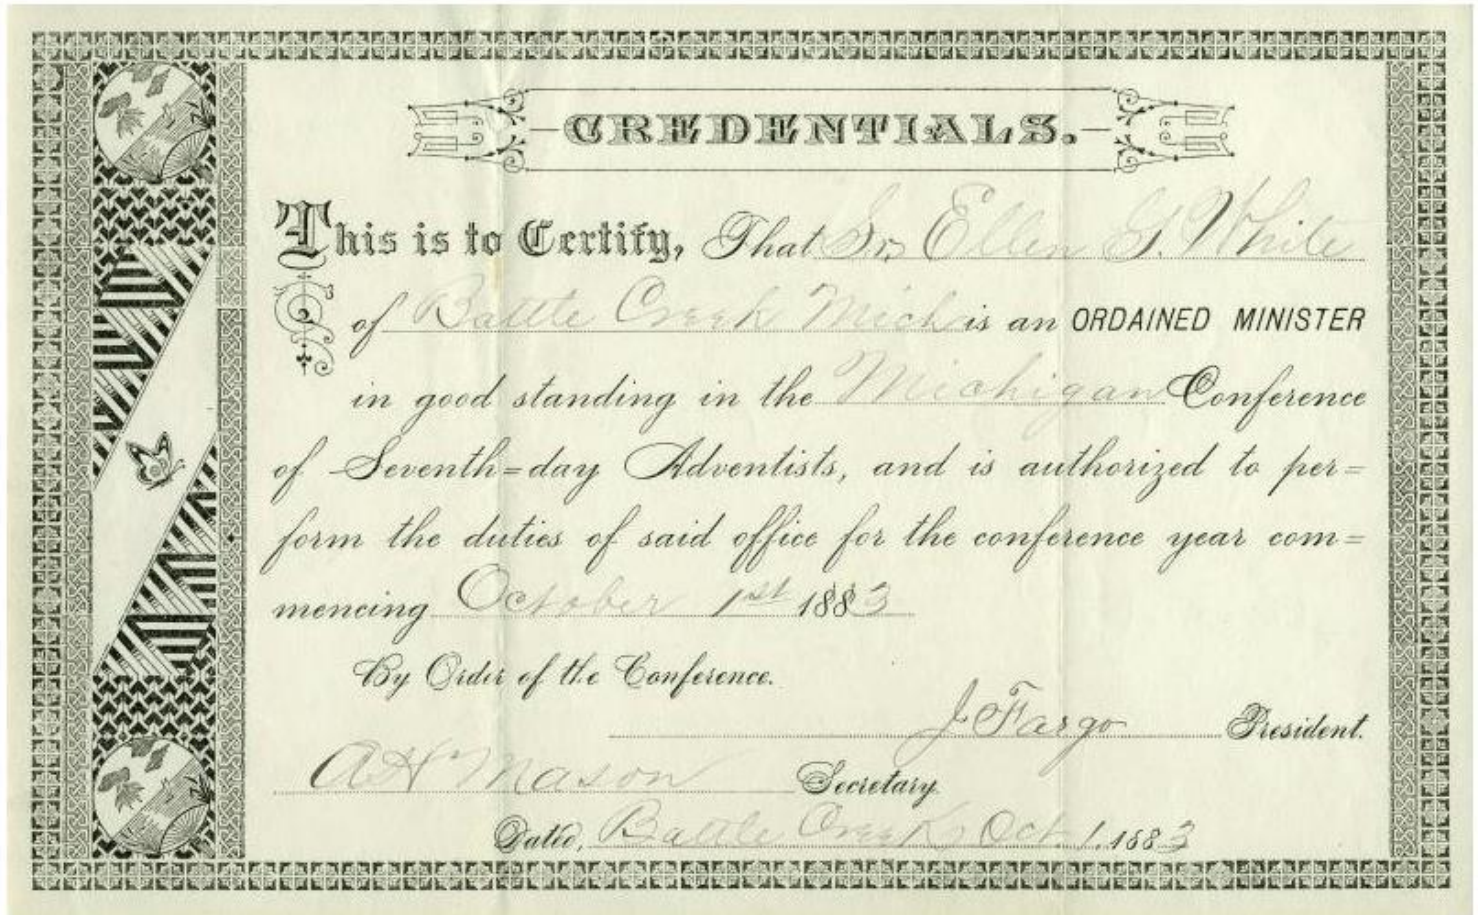 CREDENTIALS.
This is to Certify, That Sr. Ellen G. White
of Battle Creek Mich is an ORDAINED MINISTER
in good standing in the Michigan Conference
of Seventh=day Adventists, and is authorized to per=
form the duties of said office for the conference year com=
mencing October 1st 1883
By Order of the Conference.
J Fargo President.
A H Mason Secretary.
Dated, Battle Creek, Oct. 1. 1883